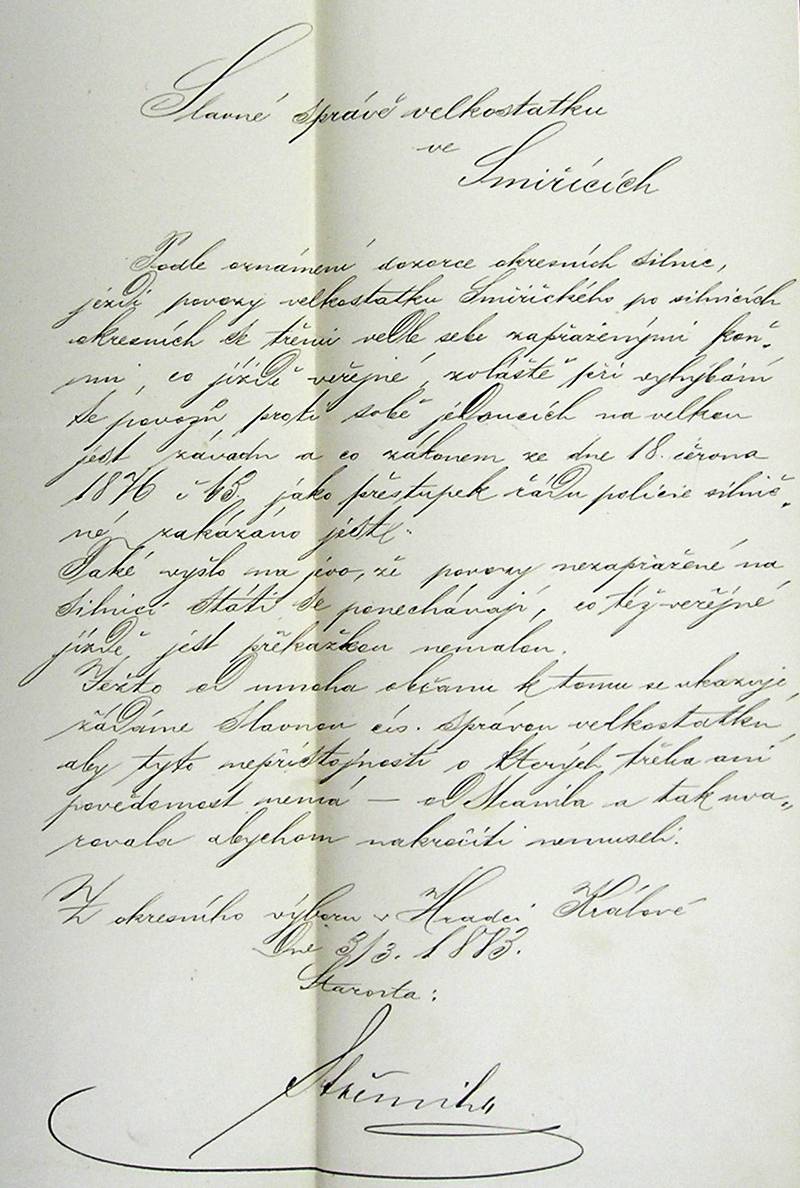 Slavné správě velkostatku
ve
Smiřicích
Podle oznámení dozorce okresních silnic,
jezdí povozy velkostatku Smiřického po silnicích
okresních se třemi vedle sebe zapřaženými koň-
mi, co jízdě veřejné, zvláště při vyhýbání
se povozů proti sobě jedoucích na velkou
jest závadu a co zákonem ze dne 18. června
1876 č 63, jako přestupek řádu policie silnič-
né, zakázáno jest.
Také vyšlo na jevo, že povozy nezapřažené na
silnici státi se ponechávají, co též veřejné
jízdě jest překažkou nemalou.
Ježto od mnoha občanů k tomu se ukazuje,
žádáme slavnou cís. správou velkostatku,
aby tyto nepřístojnosti o kterých třeba ani
povědomost nemá – odstranila a tak uva-
rovala abychom nakročiti nemuseli.
Z okresního výboru v Hradci Králové
Dne 3/3. 1883.
Starosta: